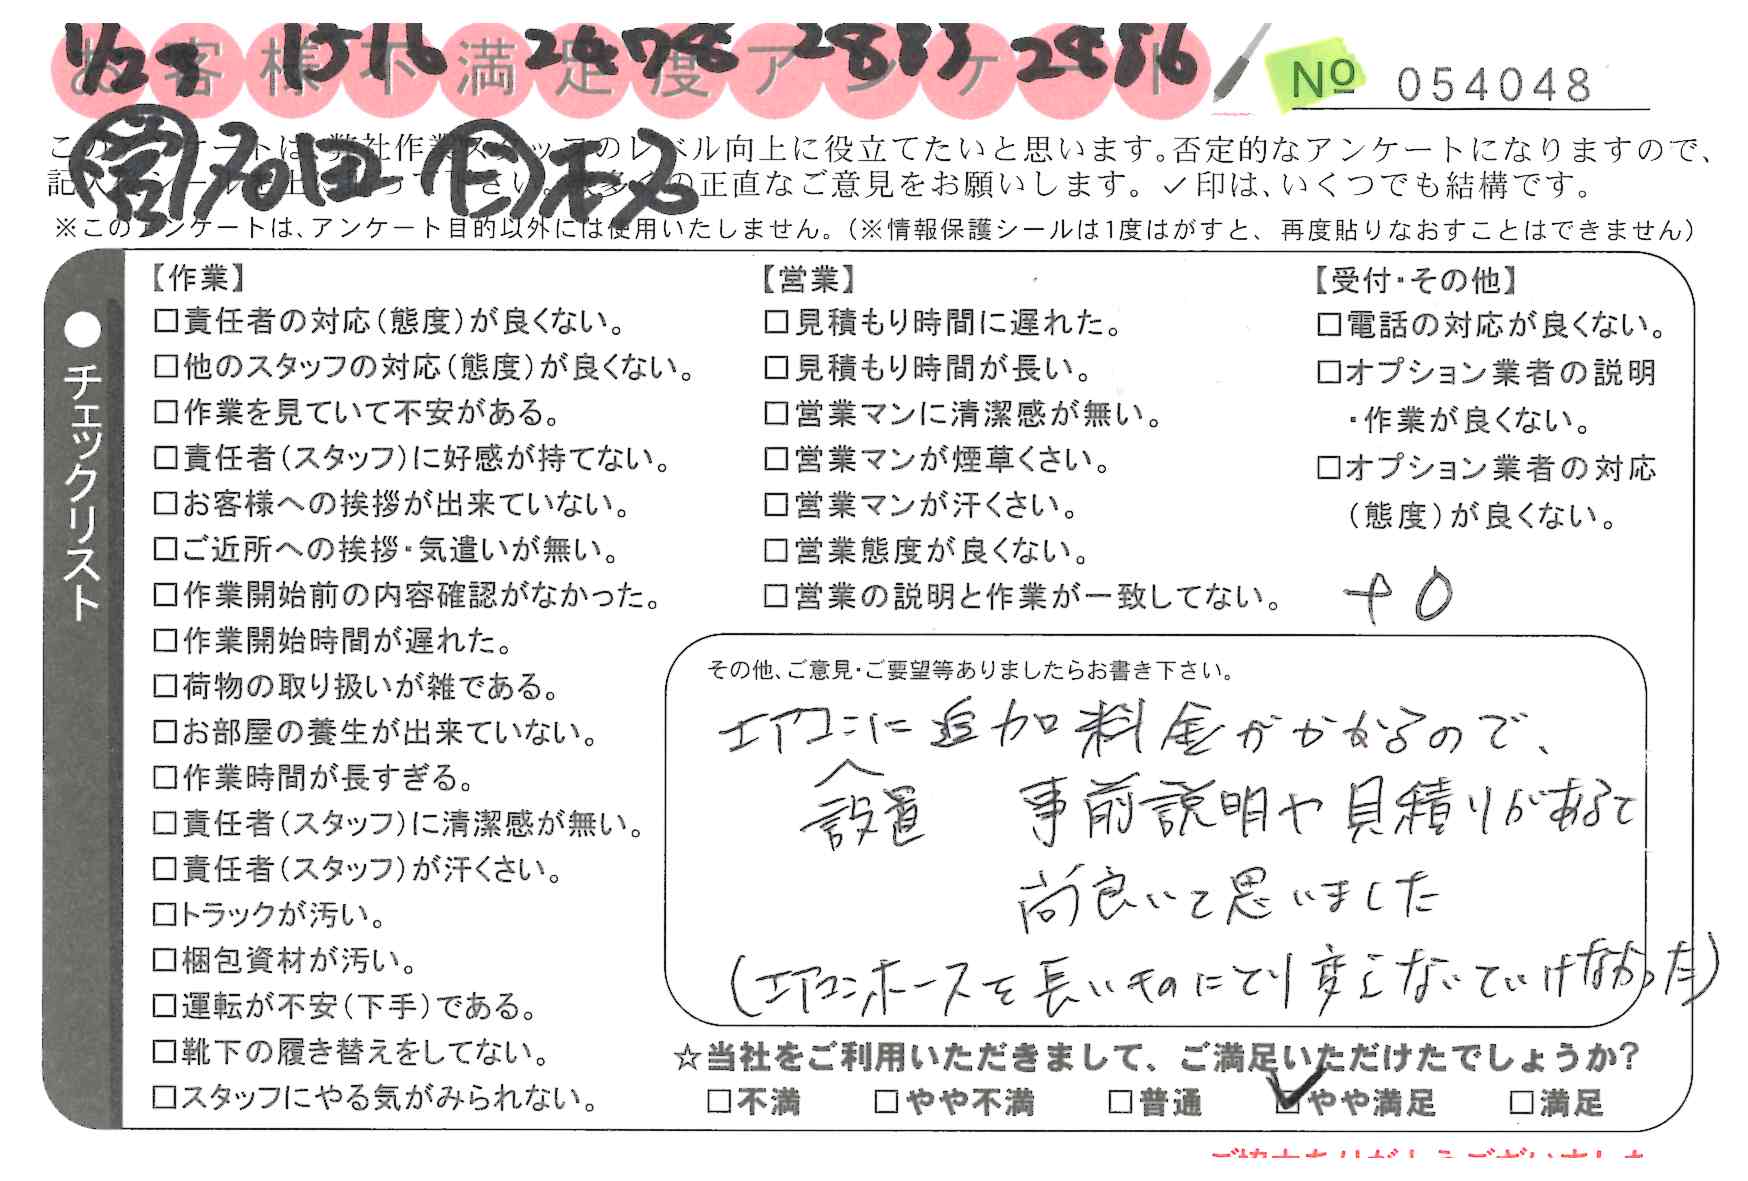 1/28 1516 2478 2883 2886
お客様不満足度アンケート
№ 054048
営 多田 仁 秘
このアンケートは、弊社作業スタッフのレベル向上に役立てたいと思います。否定的なアンケートになりますので、
の正直なご意見をお願いします。✓印は、いくつでも結構です。
※このアンケートは、アンケート目的以外には使用いたしません。(※情報保護シールは1度はがすと、再度貼りなおすことはできません)
●チェックリスト
【作業】
□責任者の対応(態度)が良くない。
□他のスタッフの対応(態度)が良くない。
□作業を見ていて不安がある。
□責任者(スタッフ)に好感が持てない。
□お客様への挨拶が出来ていない。
□ご近所への挨拶・気遣いが無い。
□作業開始前の内容確認がなかった。
□作業開始時間が遅れた。
□荷物の取り扱いが雑である。
□お部屋の養生が出来ていない。
□作業時間が長すぎる。
□責任者(スタッフ)に清潔感が無い。
□責任者(スタッフ)が汗くさい。
□トラックが汚い。
□梱包資材が汚い。
□運転が不安(下手)である。
□靴下の履き替えをしてない。
□スタッフにやる気がみられない。
【営業】
□見積もり時間に遅れた。
□見積もり時間が長い。
□営業マンに清潔感が無い。
□営業マンが煙草くさい。
□営業マンが汗くさい。
□営業態度が良くない。
□営業の説明と作業が一致してない。
【受付・その他】
□電話の対応が良くない。
□オプション業者の説明
・作業が良くない。
□オプション業者の対応
(態度)が良くない。
+0
その他、ご意見・ご要望等ありましたらお書き下さい。
エアコンに追加料金がかかるので、
設置 事前説明や見積りがあると
尚良いと思いました
(エアコンホースを長いものにとり変えないといけなかった)
☆当社をご利用いただきまして、ご満足いただけたでしょうか?
□不満 □やや不満 □普通 ☑やや満足 □満足